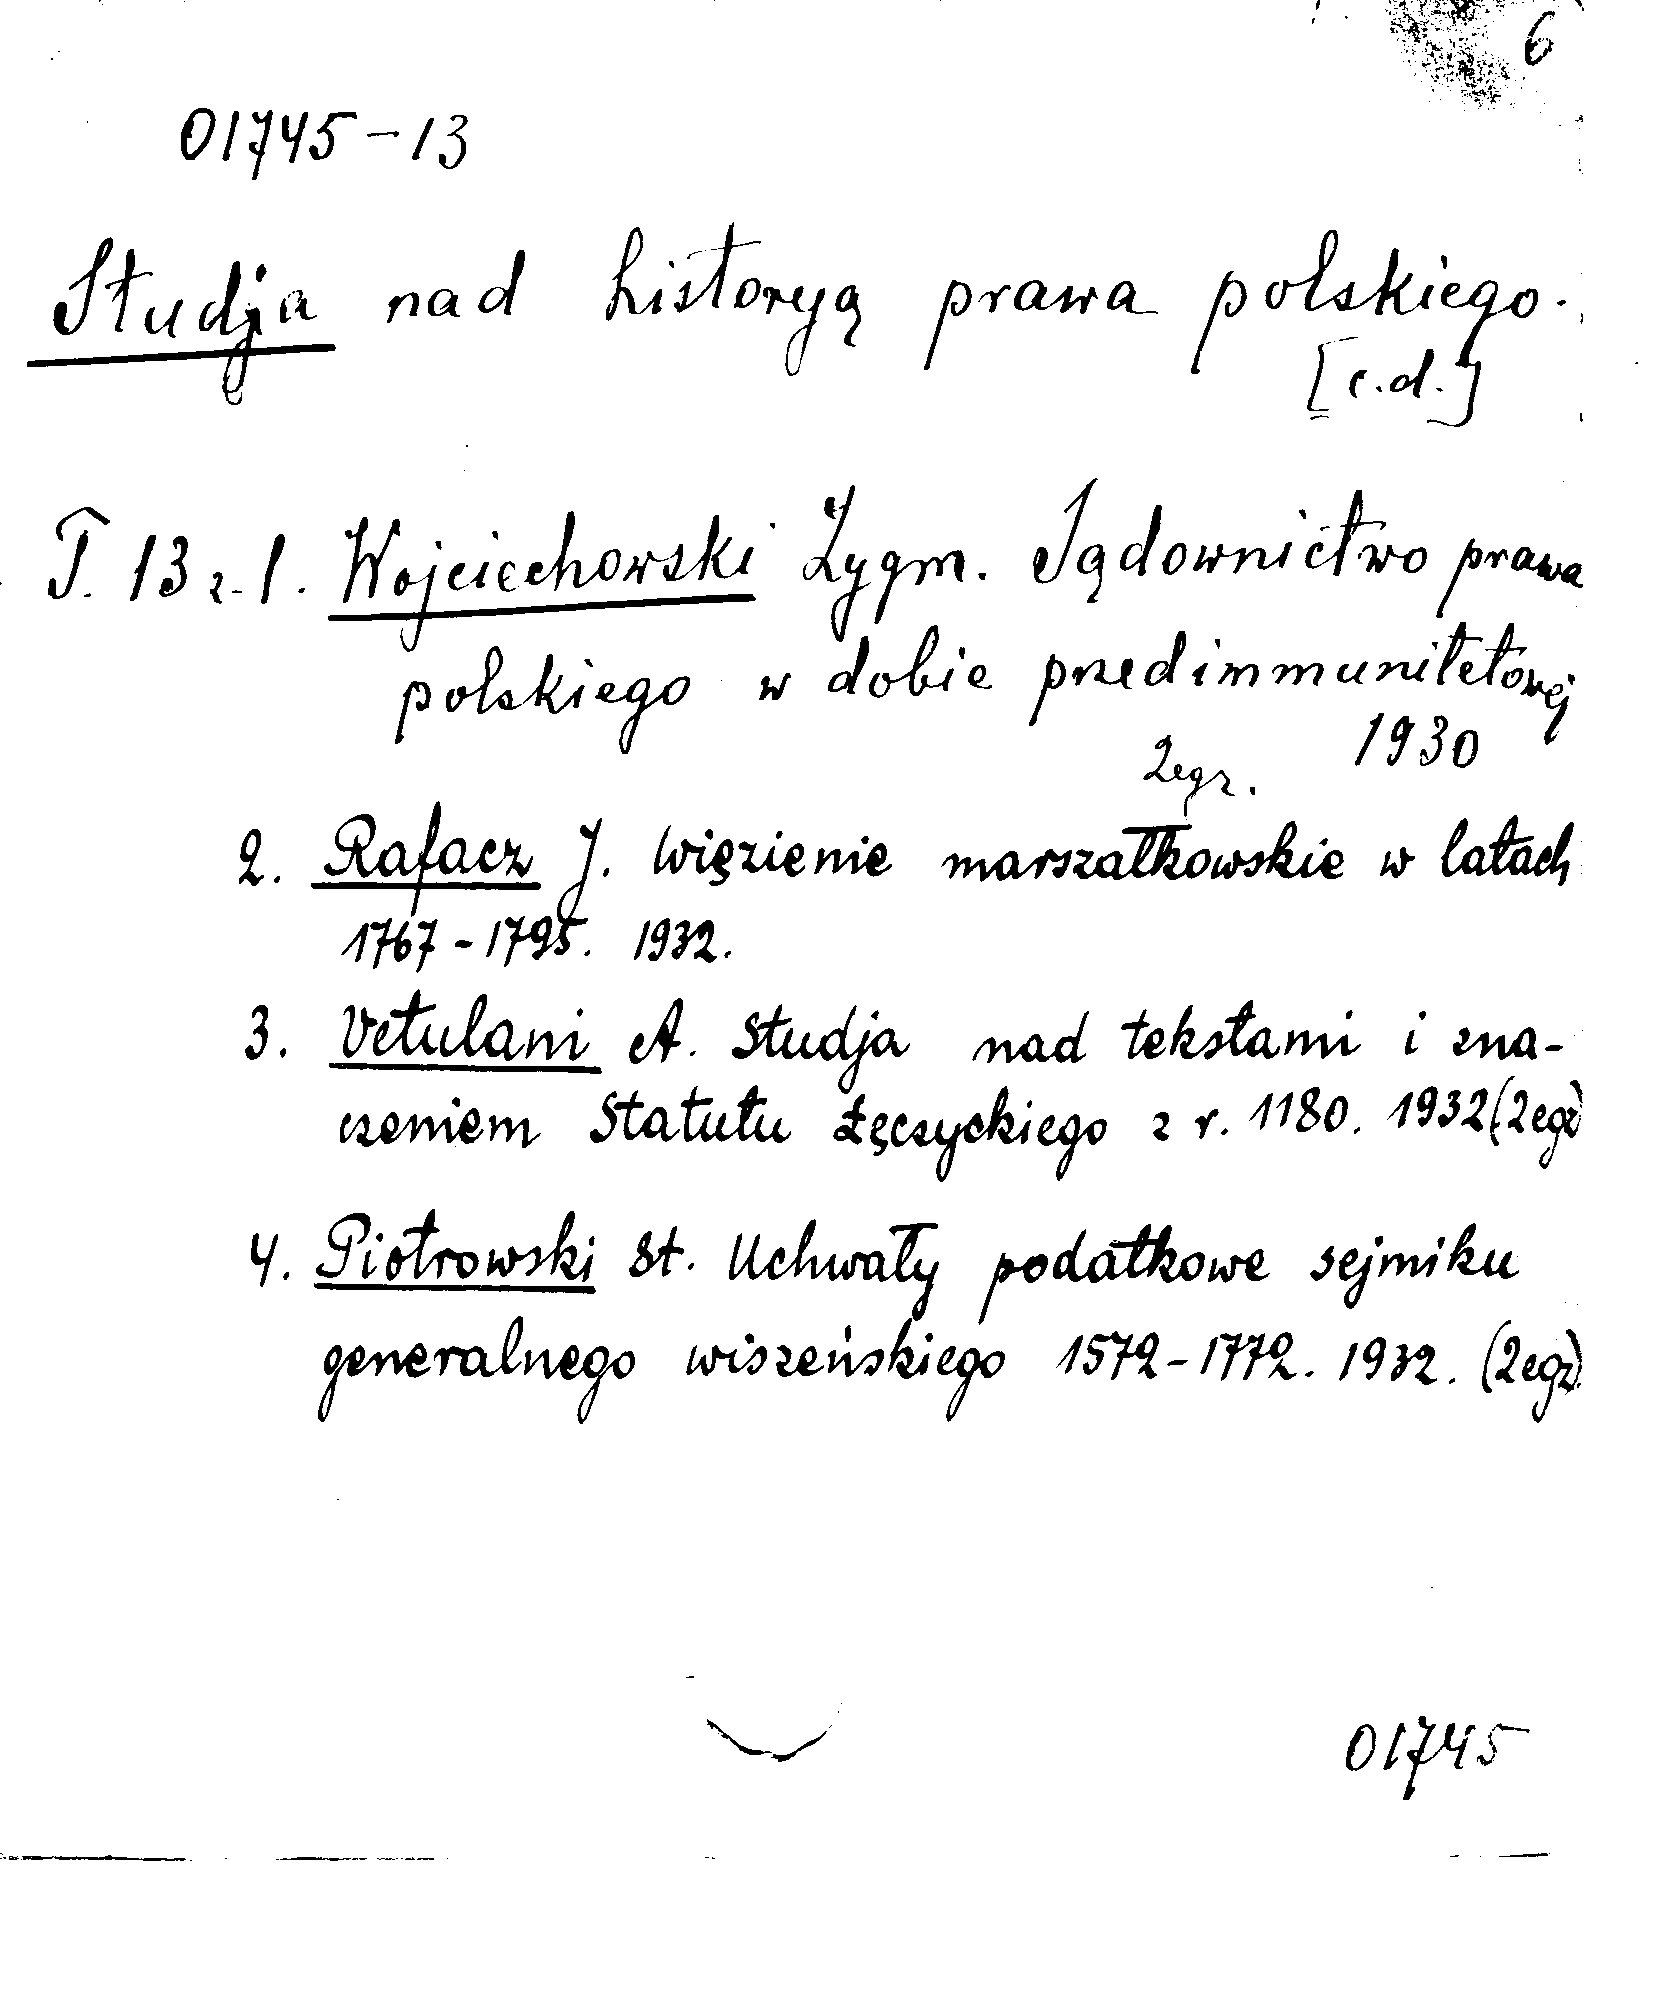 6
01745-13
Studja nad historyą prawa polskiego.
[c.d.]
T. 13 z. 1. Wojciechowski Zygm. Sądownictwo prawa
polskiego w dobie przedimmunitetowej
2egz. 1930
2. Rafacz J. Więzienie marszałkowskie w latach
1767-1795. 1932.
3. Vetulani A. Studja nad tekstami i zna-
czeniem Statutu Łęczyckiego z r. 1180. 1932 (2egz)
4. Piotrowski St. Uchwały podatkowe sejmiku
generalnego wiszeńskiego 1572-1772. 1932. (2egz).
01745